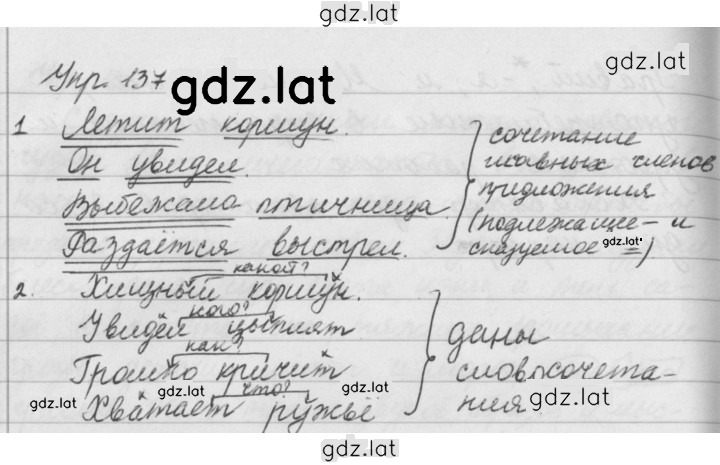 gdz.lat
gdz.lat
Упр. 137 gdz.lat
1 Летит коршун. сочетание
Он увидел. главных членов
Выбежала птичница предложения
(подлежащее — и
Раздаётся выстрел. сказуемое gdz.lat =)
какой?
2. Хищный коршун.
кого?
Увидел цыплят
как?
даны
Громко кричит
словосочета-
gdz.lat что? gdz.lat
ния gdz.lat
gdz.lat Хватает ружьё
gdz.lat